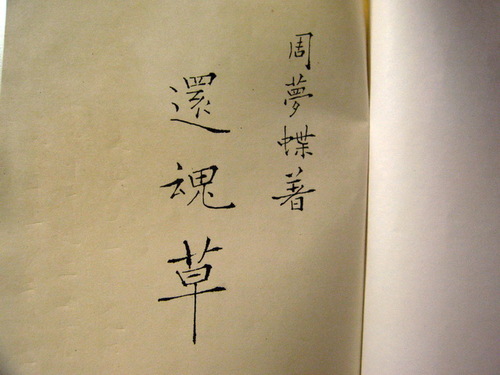 周夢蝶著
還魂草